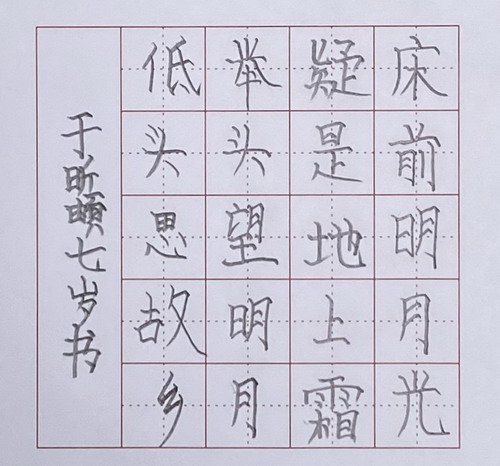 床前明月光
疑是地上霜
举头望明月
低头思故乡
于昕頔七岁书